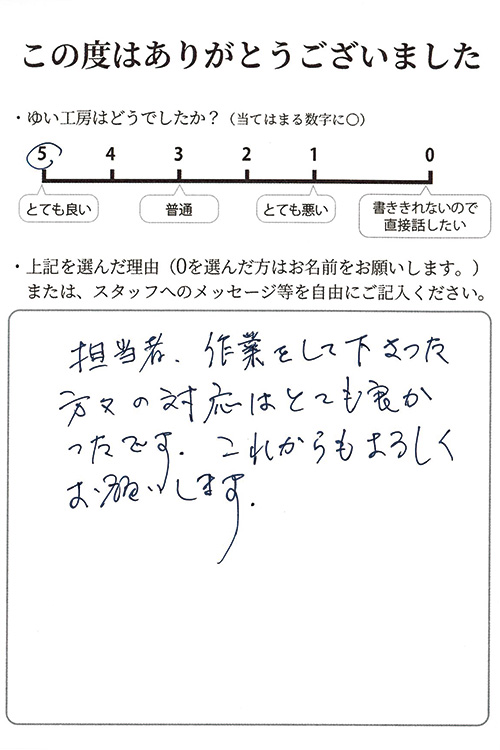 この度はありがとうございました
・ゆい工房はどうでしたか？（当てはまる数字に〇）
5 4 3 2 1 0
とても良い 普通 とても悪い 書ききれないので
直接話したい
・上記を選んだ理由（0を選んだ方はお名前をお願いします。）
または、スタッフへのメッセージ等を自由にご記入ください。
担当者、作業をして下さった
方々の対応はとても良か
ったです。これからもよろしく
お願いします。